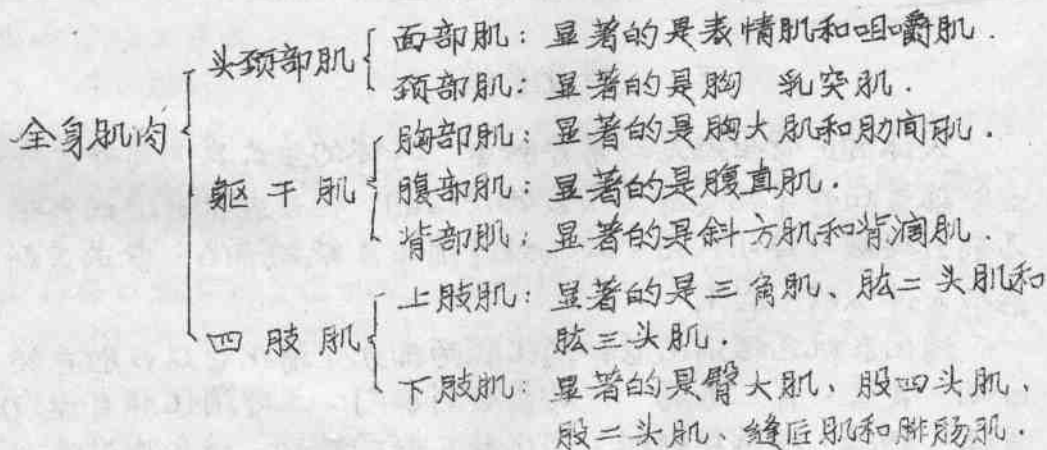 头颈部肌 面部肌：显著的是表情肌和咀嚼肌．
颈部肌：显著的是胸 乳突肌．
全身肌肉
胸部肌：显著的是胸大肌和肋间肌．
躯干肌 腹部肌：显著的是腹直肌．
背部肌：显著的是斜方肌和背阔肌．
上肢肌：显著的是三角肌、肱二头肌和
四肢肌 肱三头肌．
下肢肌：显著的是臀大肌、股四头肌、
股二头肌、缝后肌和腓肠肌．